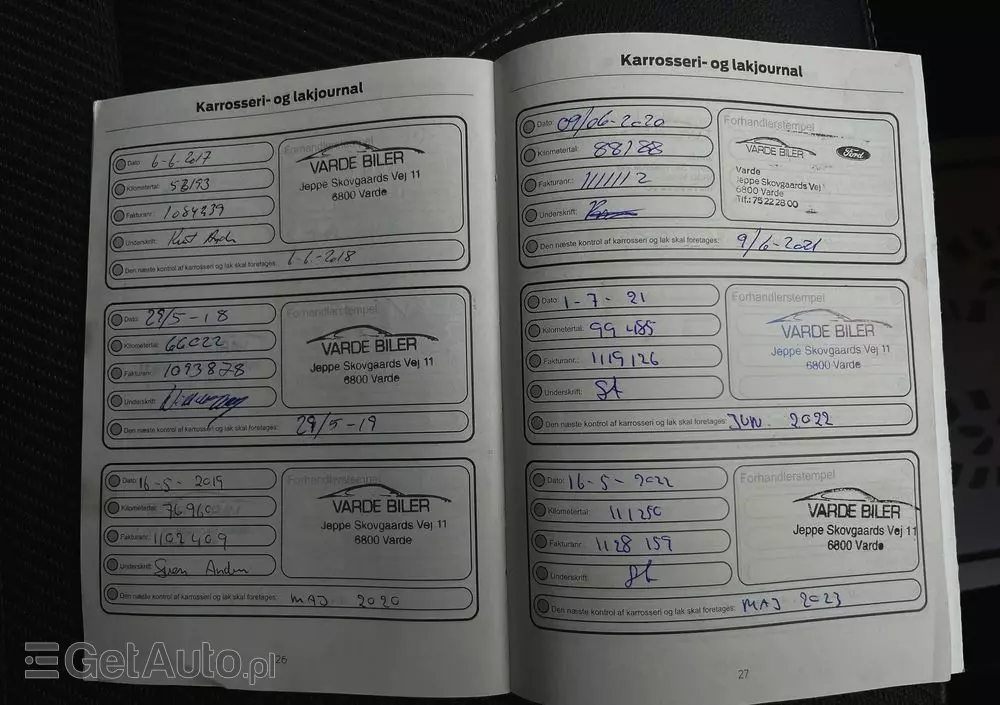 Karrosseri- og lakjournal
Dato: 6-6-2017
Kilometertal: 52193
Fakturanr.: 1084239
Underskrift:
Den næste kontrol af karrosseri og lak skal foretages: 6-6-2018
Forhandlerstempel
VARDE BILER
Jeppe Skovgaards Vej 11
6800 Varde
Dato: 29/5-18
Kilometertal: 66022
Fakturanr.: 1093878
Underskrift:
Den næste kontrol af karrosseri og lak skal foretages: 29/5-19
Forhandlerstempel
VARDE BILER
Jeppe Skovgaards Vej 11
6800 Varde
Dato: 16-5-2019
Kilometertal: 76960
Fakturanr.: 1102409
Underskrift:
Den næste kontrol af karrosseri og lak skal foretages: MAJ 2020
Forhandlerstempel
VARDE BILER
Jeppe Skovgaards Vej 11
6800 Varde
26
Karrosseri- og lakjournal
Dato: 09/06-2020
Kilometertal: 88188
Fakturanr.: 1111112
Underskrift:
Den næste kontrol af karrosseri og lak skal foretages: 9/6-2021
Forhandlerstempel
VARDE BILER
Ford
Varde
Jeppe Skovgaards Vej
6800 Varde
Tlf.: 75 22 28 00
Dato: 1-7-21
Kilometertal: 99485
Fakturanr.: 1119126
Underskrift:
Den næste kontrol af karrosseri og lak skal foretages: JUN. 2022
Forhandlerstempel
VARDE BILER
Jeppe Skovgaards Vej 11
6800 Varde
Dato: 16-5-2022
Kilometertal: 111250
Fakturanr.: 1128159
Underskrift:
Den næste kontrol af karrosseri og lak skal foretages: MAJ 2023
Forhandlerstempel
VARDE BILER
Jeppe Skovgaards Vej 11
6800 Varde
27
GetAuto.pl